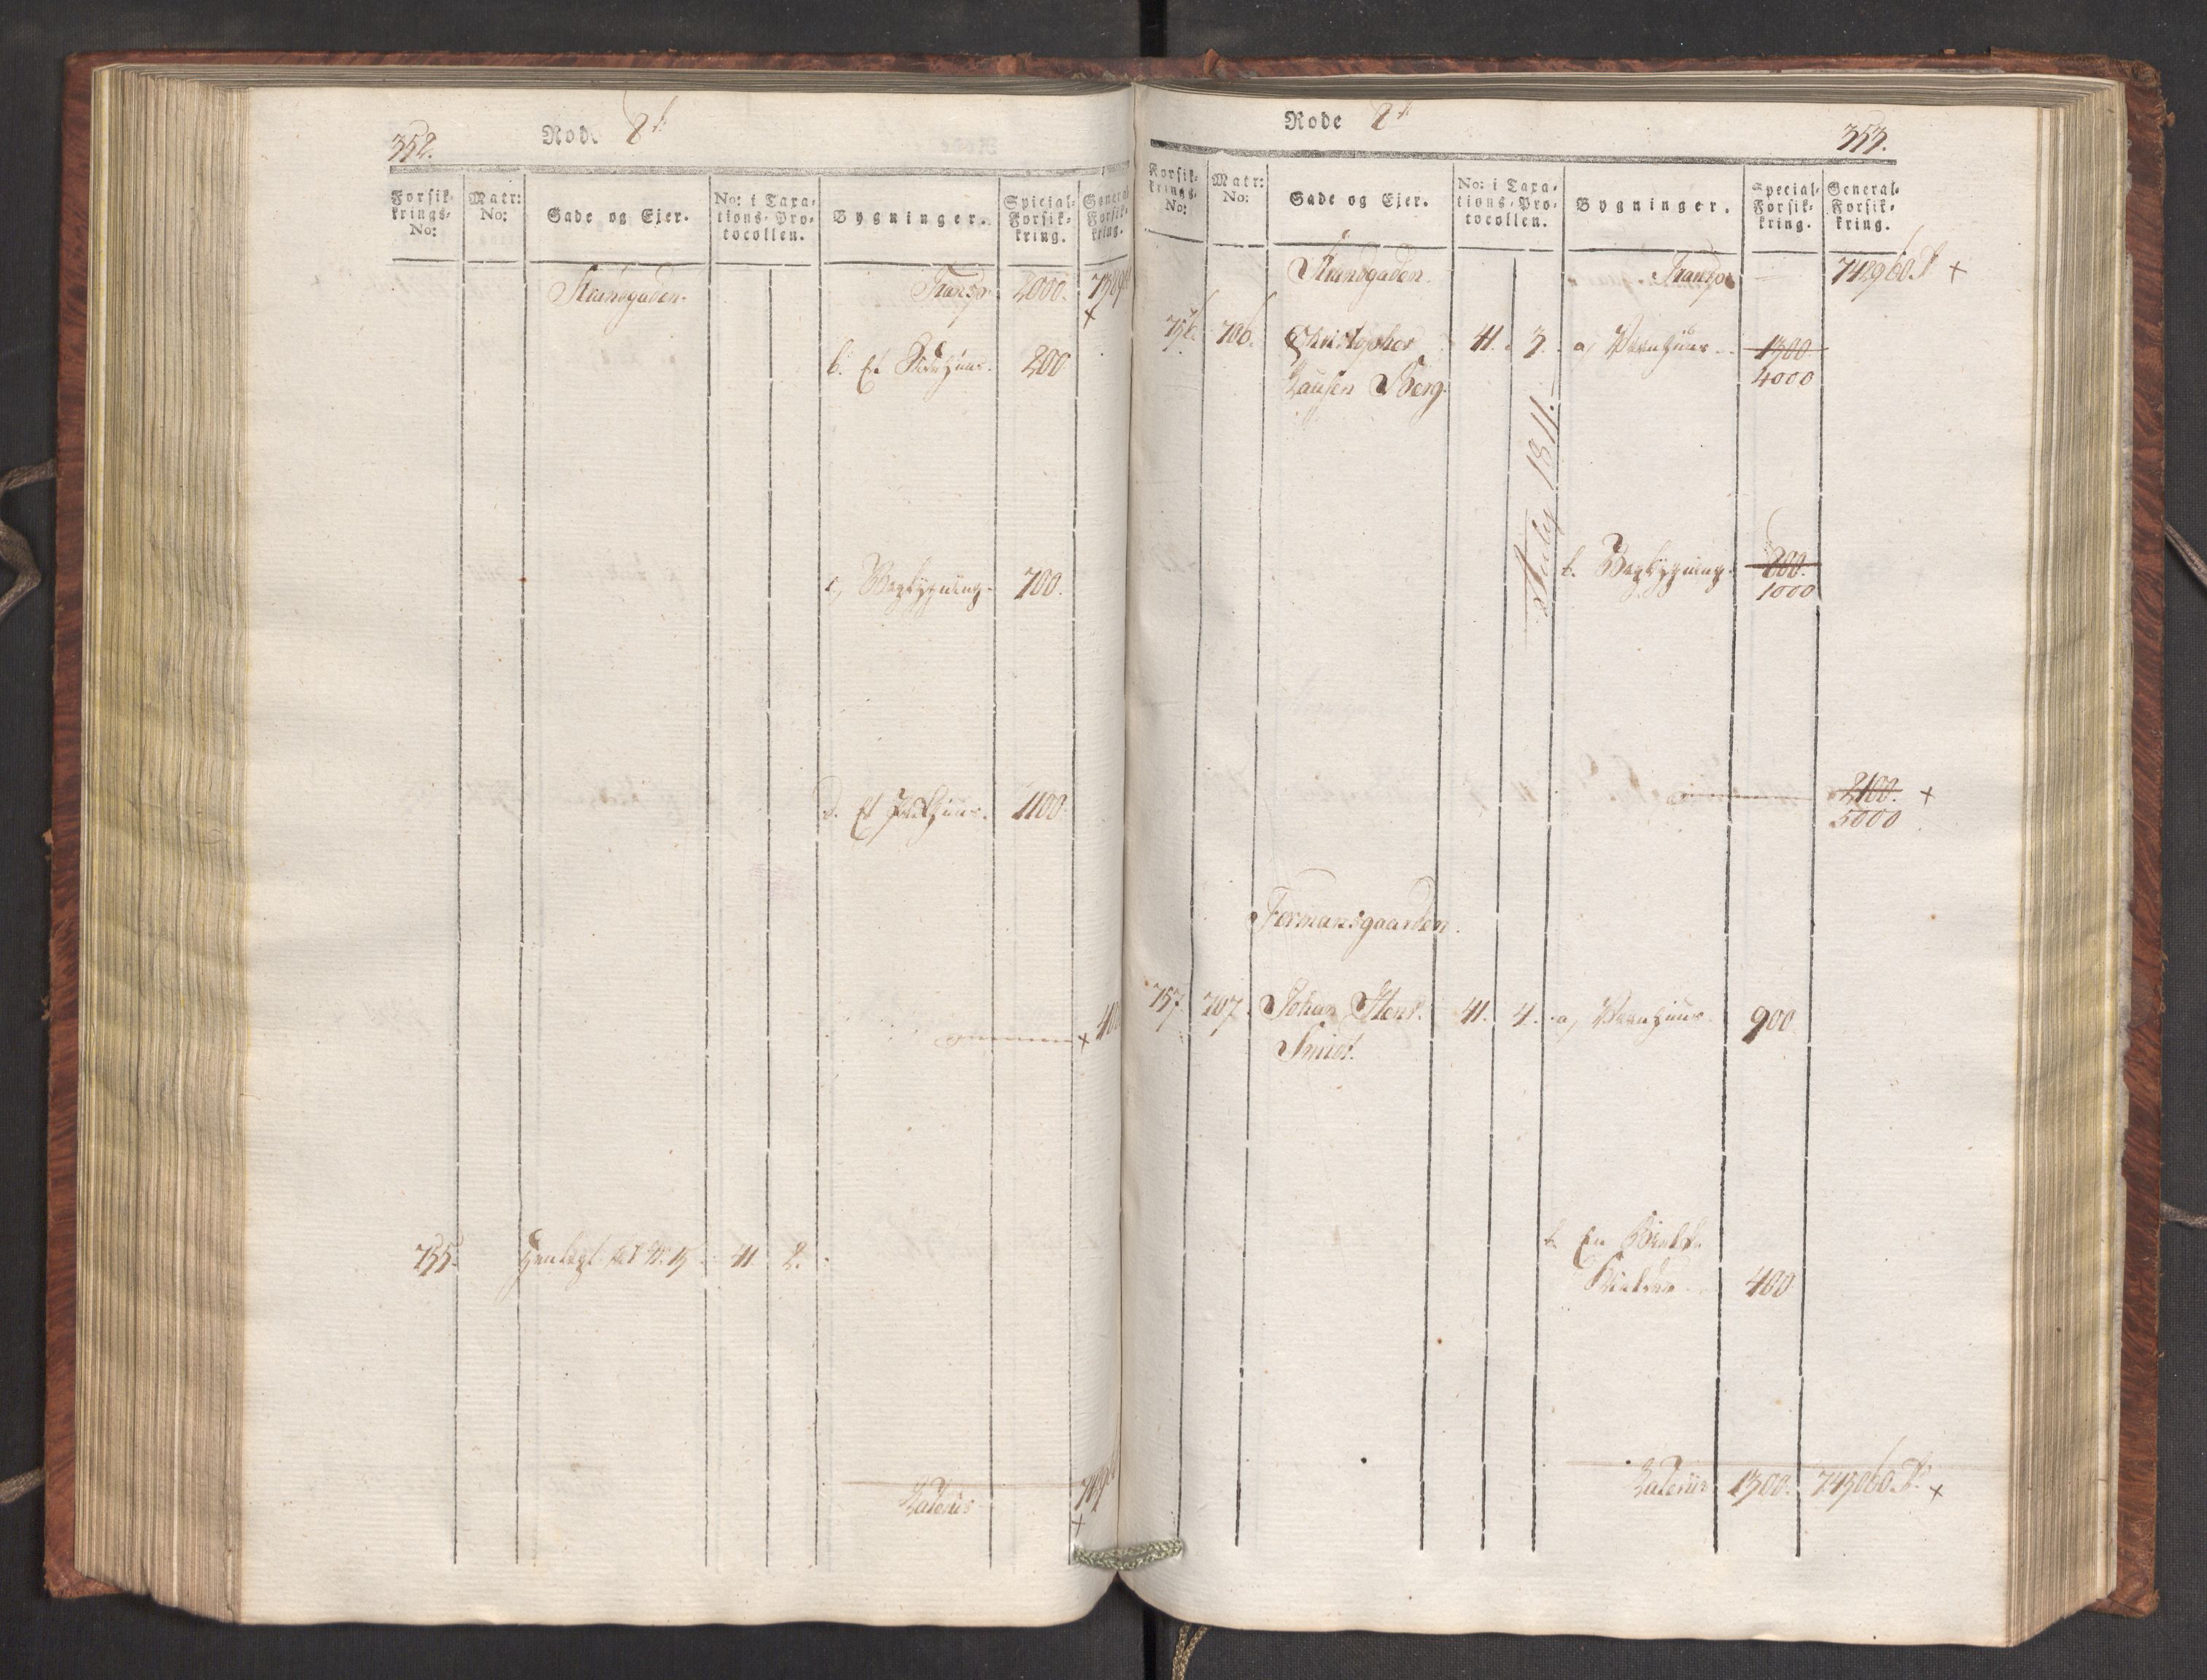 352.
Rode 8de
Forsik-
krings-
No:
Matr:
No:
Gade og Ejer.
No: i Taxa-
tions-Pro-
tocollen.
Bygninger.
Special-
Forsik-
kring.
General
Forsik-
kring.
Strandgaden. Transp. 2000.
+
b. Et 200
c, Bagbygning. 700.
d. Et Pakhuus. 1100.
+
755. 41. 2.
Laterus
+
Rode 8de
353.
Forsik-
krings-
No:
Matr:
No:
Gade og Ejer.
No: i Taxa-
tions-Pro-
tocollen.
Bygninger.
Special-
Forsik-
kring.
General-
Forsik-
kring.
Strandgaden. Transp. 742960 +
756. 706. Christopher 41. 3. a, Vaanhuus 1300
Lausen Berg. 4000
July 1811.
b. Bagbygning. 800.
1000
2100. +
5000
Formansgaarden.
757. 707. Johan Henr. 41. 4. a, Vaanhuus. 900
Smidt.
b. En
400
Laterus 1300. 745060 +